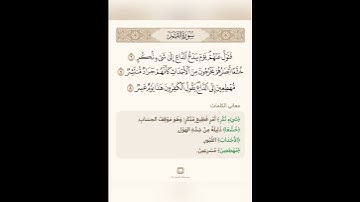 سُورَةُ القَمَرِ
فَتَوَلَّ عَنْهُمْ يَوْمَ يَدْعُ الدَّاعِ إِلَىٰ شَيْءٍ نُّكُرٍ ٦
خُشَّعًا أَبْصَارُهُمْ يَخْرُجُونَ مِنَ الْأَجْدَاثِ كَأَنَّهُمْ جَرَادٌ مُّنتَشِرٌ ٧
مُّهْطِعِينَ إِلَى الدَّاعِ يَقُولُ الْكَافِرُونَ هَٰذَا يَوْمٌ عَسِرٌ ٨
معاني الكلمات
﴿شَيْءٍ نُّكُرٍ﴾ أمر فظيع منكر؛ وهو موقف الحساب.
﴿خُشَّعًا﴾ ذليلة من شدة الهول.
﴿الْأَجْدَاثِ﴾ القبور.
﴿مُّهْطِعِينَ﴾ مسرعين.